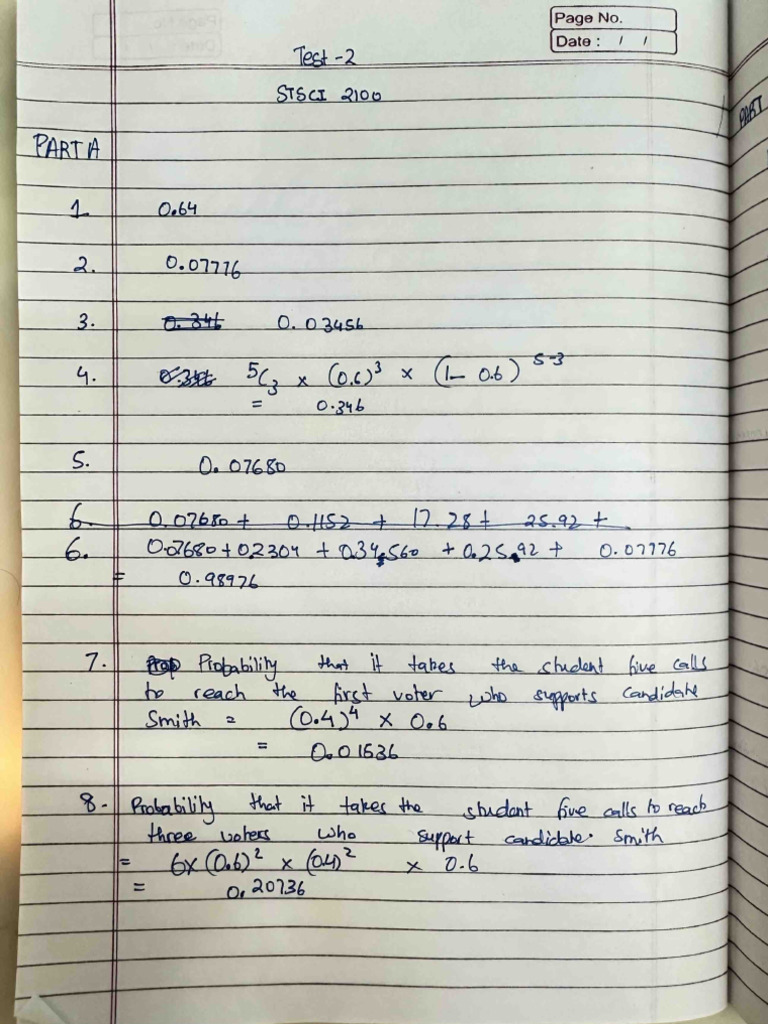 Page No.
Date : / /
Test-2
STSCI 2100
PART A
1. 0.64
2. 0.07776
3. 0.346 0.03456
4. 0.346 5C3 x (0.6)3 x (1- 0.6) 5-3
= 0.346
5. 0.07680
6. 0.07680 + 0.1152 + 17.28 + 25.92 +
6. 0.07680 + 0.2304 + 0.34560 + 0.2592 + 0.07776
= 0.98976
7. Probability that it takes the student five calls
to reach the first voter who supports candidate
Smith = (0.4)4 x 0.6
= 0.01536
8. Probability that it takes the student five calls to reach
three voters who support candidate Smith
= 6x (0.6)2 x (0.4)2 x 0.6
= 0.20736
PART